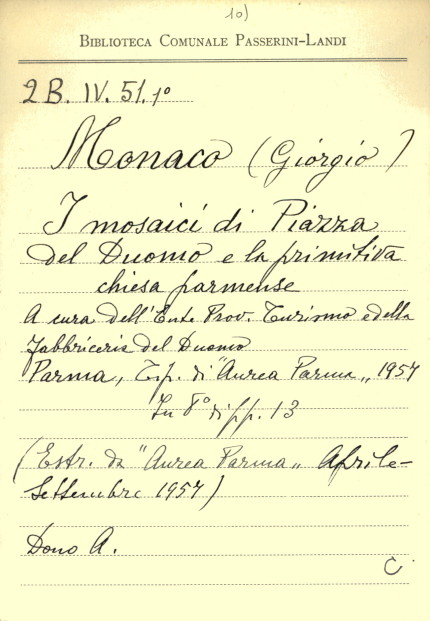 10)
BIBLIOTECA COMUNALE PASSERINI-LANDI
2B. IV. 51. 1º
Monaco (Giorgio)
I mosaici di Piazza
del Duomo e la primitiva
chiesa parmense
A cura dell'Ente Prov. Turismo e della
Fabbriceria del Duomo
Parma, Tip. di "Aurea Parma„ 1957
In 8º di pp. 13
(Estr. da "Aurea Parma„ Aprile-
Settembre 1957)
Dono A.
C